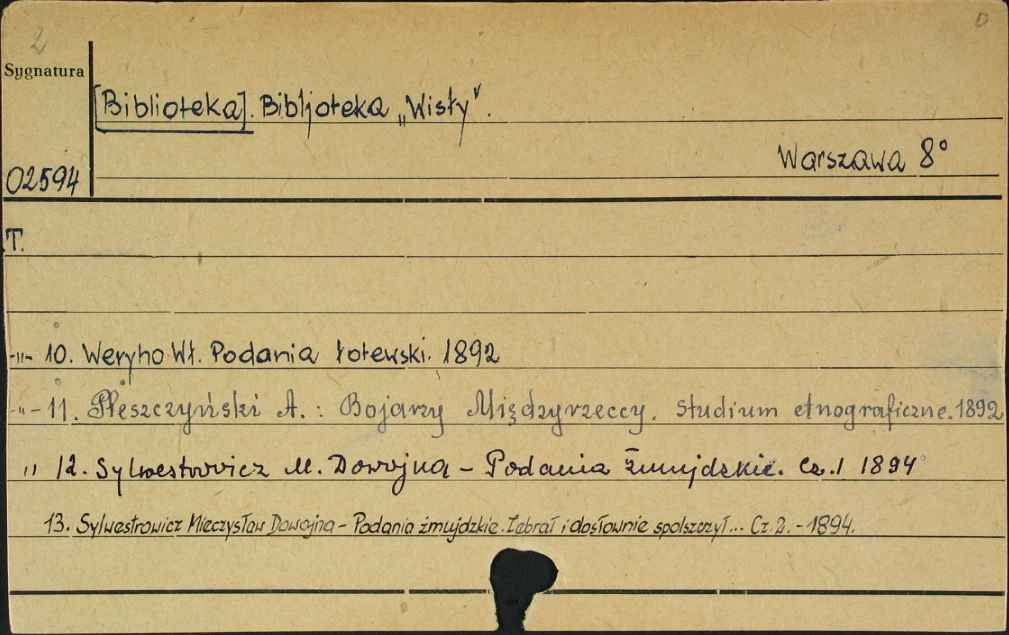 2
0
Sygnatura
[Biblioteka]. Bibljoteka „Wisły".
Warszawa 8°
02594
T.
-"- 10. Weryho Wł. Podania łotewski. 1892
-"- 11. Pleszczyński A.: Bojarzy Międzyrzeccy. Studium etnograficzne. 1892
" 12. Sylwestrowicz M. Dowojna - Podania żmujdzkie. Cz. 1 1894
13. Sylwestrowicz Mieczysław Dowojna - Podania żmujdzkie. Zebrał i dosłownie spolszczył... Cz. 2. - 1894.